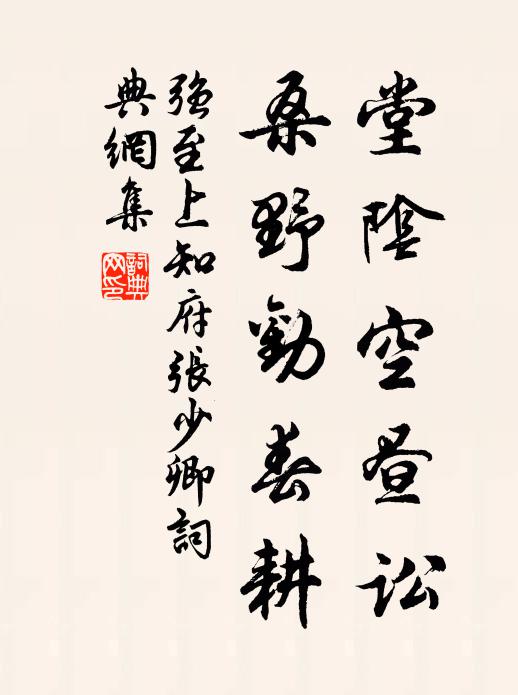 堂陰空晝訟
桑野勸春耕
強至上知府張少卿詞
典網集
詞典網印